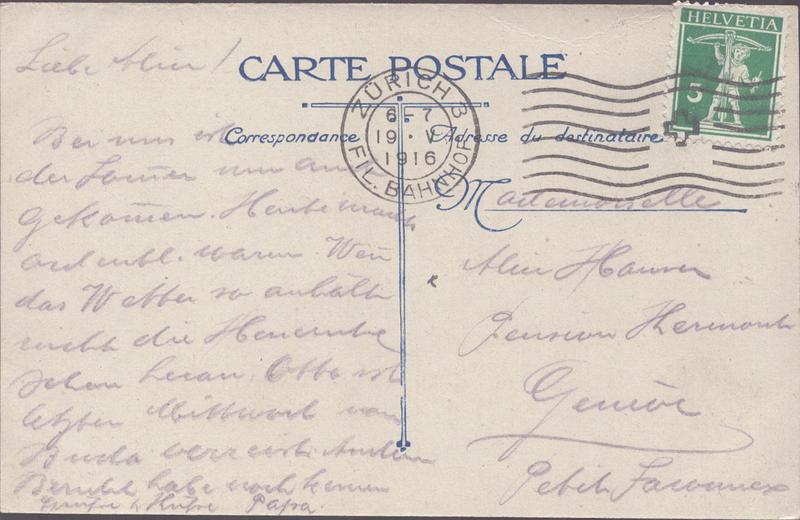 HELVETIA
5
CARTE POSTALE
ZÜRICH 3
6-7
19 · V
1916
FIL. BAHNHOF
Correspondance
Adresse du destinataire
Liebe Alice!
Bei uns ist
der Som̅er nun an-
gekom̅en. Heute
ordentl. warm. Wen̅
das Wetter so anhält
rückt die Heuernte
schon heran. Otto ist
letzten Mittwoch von
Buda verreist.
Bericht habe noch keinen
Grüsse & Küsse Papa.
Mademoiselle
Alice Hauser
Pension
Genève
Petit Saconnex